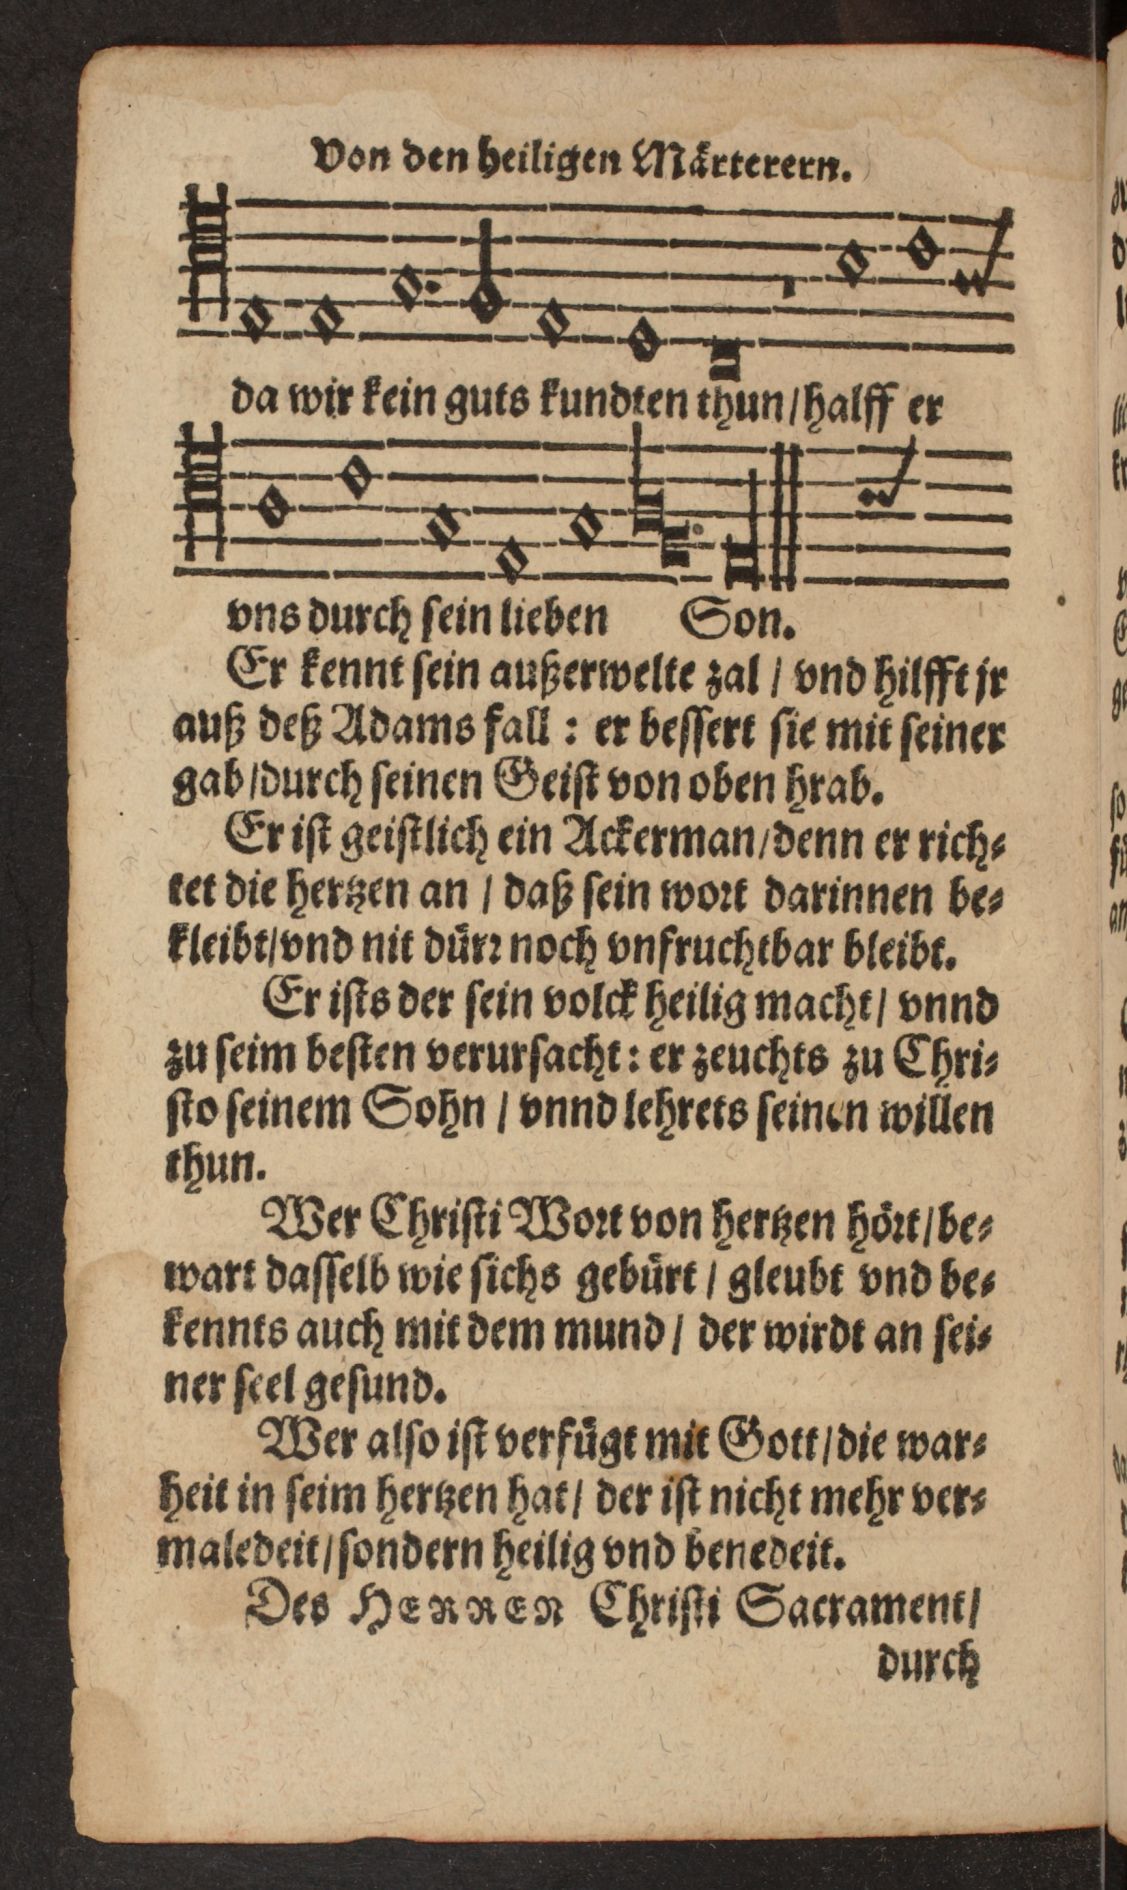 Von den heiligen Märterern.
da wir kein guts kundten thun / halff er
vns durch sein lieben Son.
Er kennt sein außerwelte zal / vnd hilfft jr
auß deß Adams fall : er bessert sie mit seiner
gab / durch seinen Geist von oben hrab.
Er ist geistlich ein Ackerman / denn er rich-
tet die hertzen an / daß sein wort darinnen be-
kleibt / vnd nit dürr noch vnfruchtbar bleibt.
Er ists der sein volck heilig macht / vnnd
zu seim besten verursacht : er zeuchts zu Chri-
sto seinem Sohn / vnnd lehrets seinen willen
thun.
Wer Christi Wort von hertzen hört / be-
wart dasselb wie sichs gebürt / gleubt vnd be-
kennts auch mit dem mund / der wirdt an sei-
ner seel gesund.
Wer also ist verfügt mit Gott / die war-
heit in seim hertzen hat / der ist nicht mehr ver-
maledeit / sondern heilig vnd benedeit.
Des HERREN Christi Sacrament /
durch